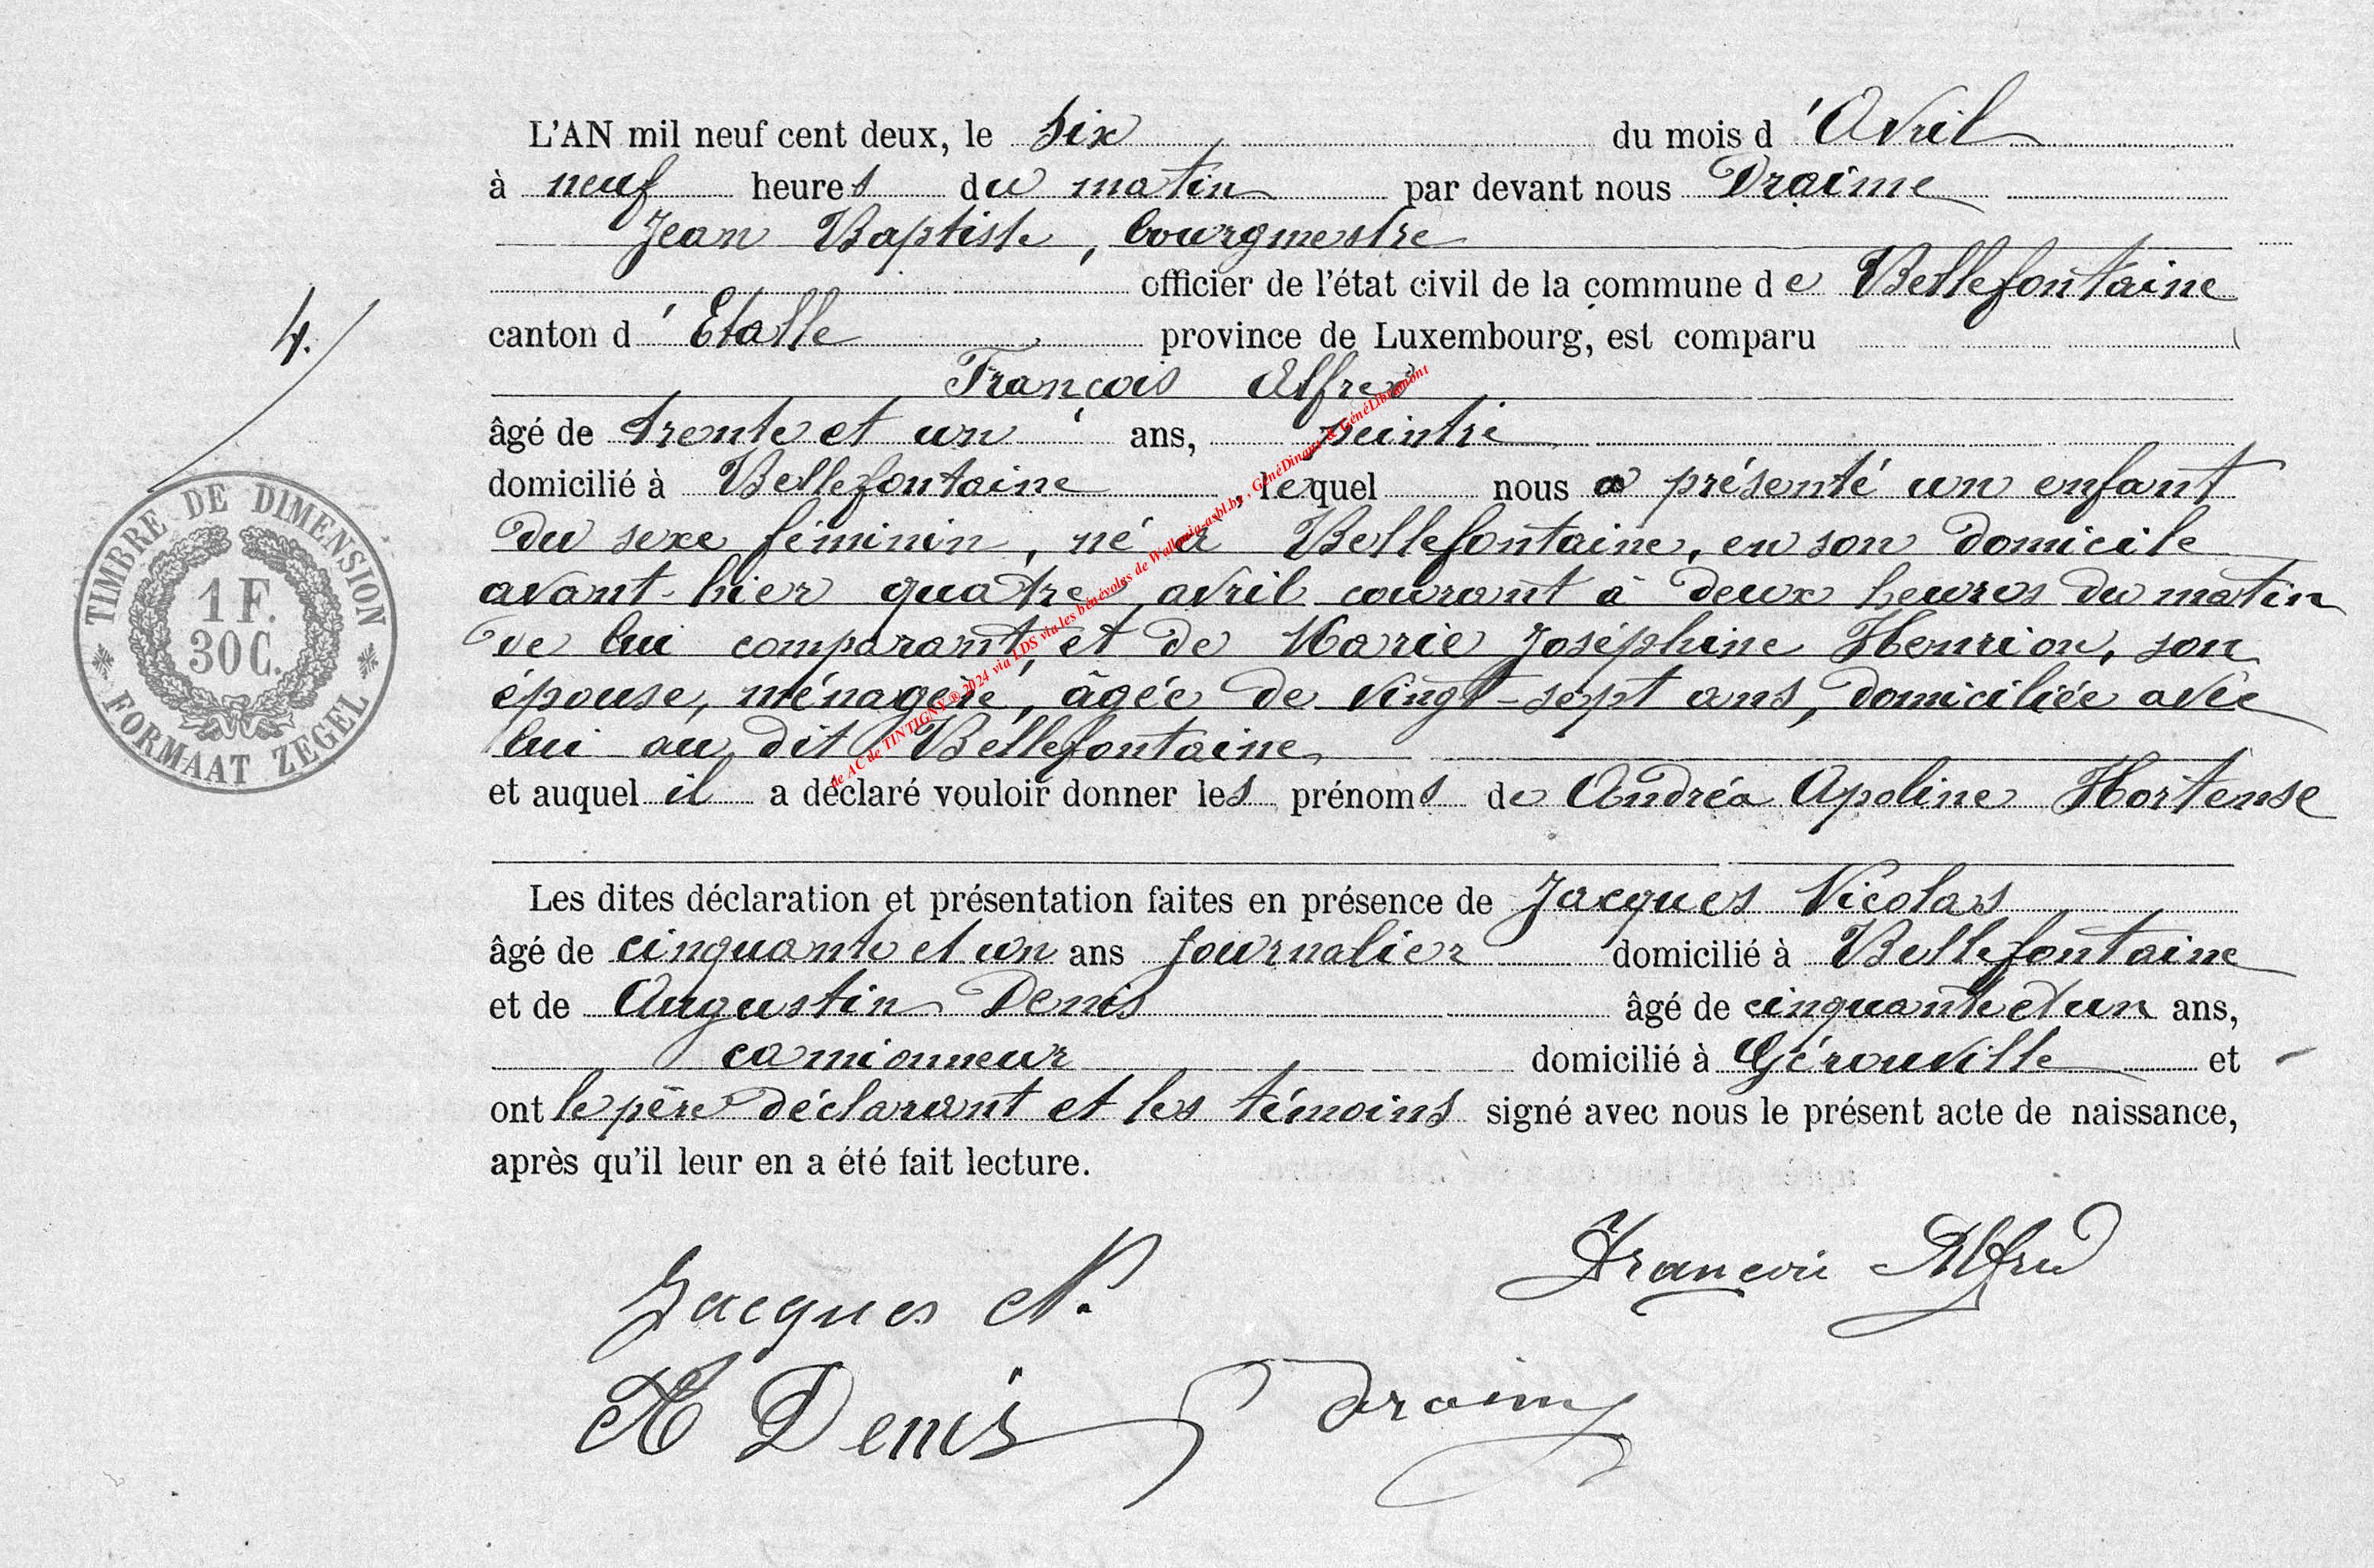 L'AN mil neuf cent deux, le six du mois d'Avril
à neuf heures du matin par devant nous Draime
Jean Baptiste, bourgmestre
officier de l'état civil de la commune de Bellefontaine
canton d'Etalle province de Luxembourg, est comparu
François Alfred
âgé de trente et un ans, peintre
domicilié à Bellefontaine, lequel nous a présenté un enfant
du sexe féminin, né à Bellefontaine, en son domicile
avant-hier quatre avril courant à deux heures du matin
de lui comparant, et de Marie Joséphine Henrion, son
épouse, ménagère, âgée de vingt-sept ans, domiciliée avec
lui au dit Bellefontaine
et auquel il a déclaré vouloir donner les prénoms de Andréa Apoline Hortense
Les dites déclaration et présentation faites en présence de Jacques Nicolas
âgé de cinquante et un ans journalier domicilié à Bellefontaine
et de Augustin Denis âgé de cinquante et un ans,
camionneur domicilié à Gérouville et
ont le père déclarant et les témoins signé avec nous le présent acte de naissance,
après qu'il leur en a été fait lecture.
4.
TIMBRE DE DIMENSION
1 F.
30 C.
FORMAAT ZEGEL
de AC de TINTIGNY ® 2024 via LDS via les bénévoles de Wallonia-asbl.be, GénéDinant & GénéLibramont
François Alfred
Jacques N.
A Denis
Draime